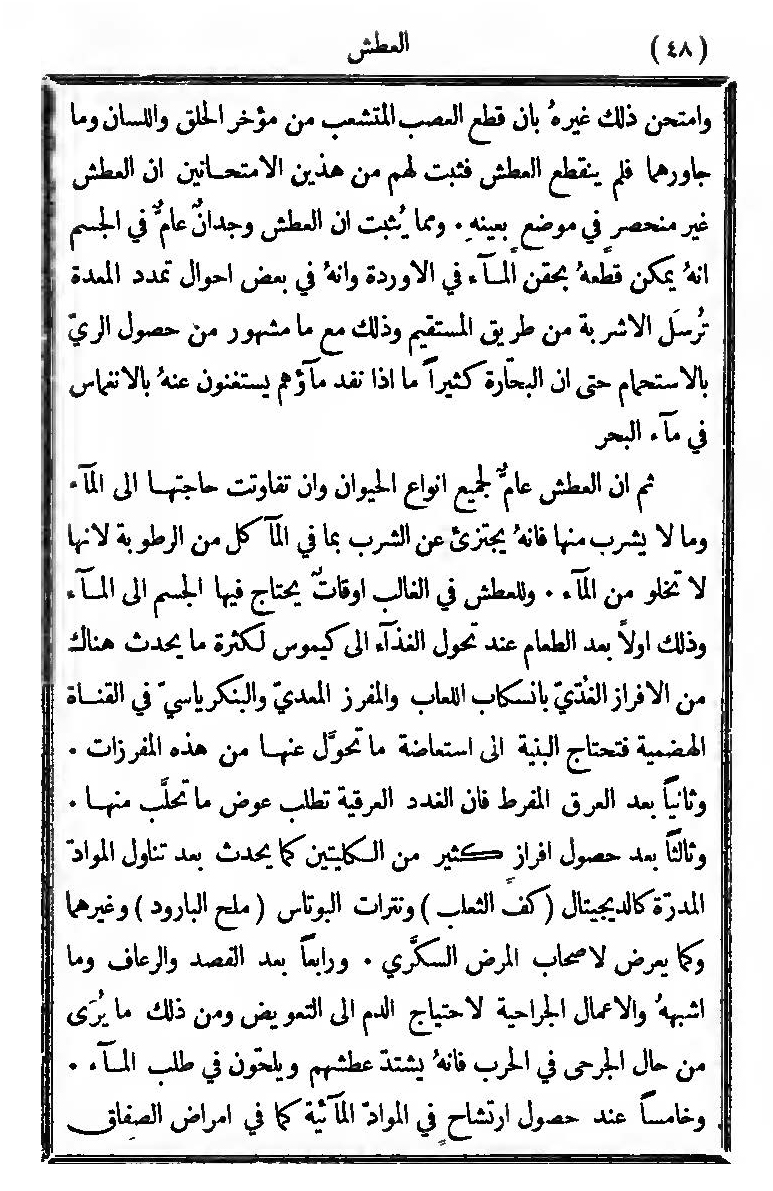 (٤٨) العطش
وامتحن ذلك غيرهُ بان قطع العصب المتشعب من مؤخر الحلق واللسان وما
جاورهما فلم ينقطع العطش فثبت لهم من هذين الامتحانين ان العطش
غير منحصرٍ في موضعٍ بعينهِ ٠ ومما يُثبت ان العطش وجدانٌ عامٌّ في الجسم
انهُ يمكن قطعهُ بحقن المآء في الاوردة وانهُ في بعض احوال تمدد المعدة
تُرسَل الاشربة من طريق المستقيم وذلك مع ما مشهور من حصول الريّ
بالاستحمام حتى ان البحّارة كثيراً ما اذا نفد مآؤهم يستغنون عنهُ بالانغماس
في مآء البحر
ثم ان العطش عامٌّ لجميع انواع الحيوان وان تفاوتت حاجتها الى المآء
وما لا يشرب منها فانهُ يجتزئ عن الشرب بما في المآكل من الرطوبة لانها
لا تخلو من المآء ٠ وللعطش في الغالب اوقاتٌ يحتاج فيها الجسم الى المآء
وذلك اولاً بعد الطعام عند تحول الغذآء الى كيموس لكثرة ما يحدث هناك
من الافراز الغُدّيّ بانسكاب اللعاب والمفرز المعديّ والبنكرياسيّ في القناة
الهضمية فتحتاج البنية الى استعاضة ما تحوَّل عنها من هذه المفرزات ٠
وثانياً بعد العرق المفرط فان الغدد العرقية تطلب عوض ما تحلَّب منها ٠
وثالثاً بعد حصول افرازٍ كثير من الكليتين كما يحدث بعد تناول الموادّ
المدرّة كالديجيتال (كف الثعلب) ونترات البوتاس (ملح البارود) وغيرهما
وكما يعرض لاصحاب المرض السكَّري ٠ ورابعاً بعد الفصد والرعاف وما
اشبههُ والاعمال الجراحية لاحتياج الدم الى التعويض ومن ذلك ما يُرَى
من حال الجرحى في الحرب فانهُ يشتدّ عطشهم ويلحّون في طلب المآء ٠
وخامساً عند حصول ارتشاحٍ في الموادّ المآئية كما في امراض الصِفاق